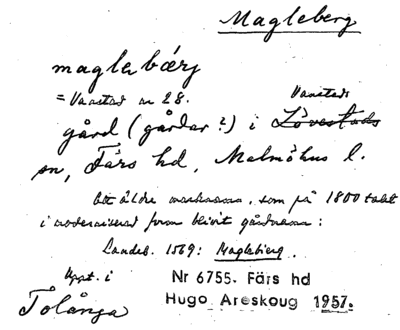 Magleberg
maglabærj
= Vanstad nr 28.
Vanstads
gård (gårdar?) i Lövestads
sn, Färs hd, Malmöhus l.
äldre som på 1800 talet
i moderniserad form blivit gårdnamn:
Landeb. 1569: Maglebierg.
Uppt. i
Tolånga
Nr 6755. Färs hd
Hugo Areskoug 1957.